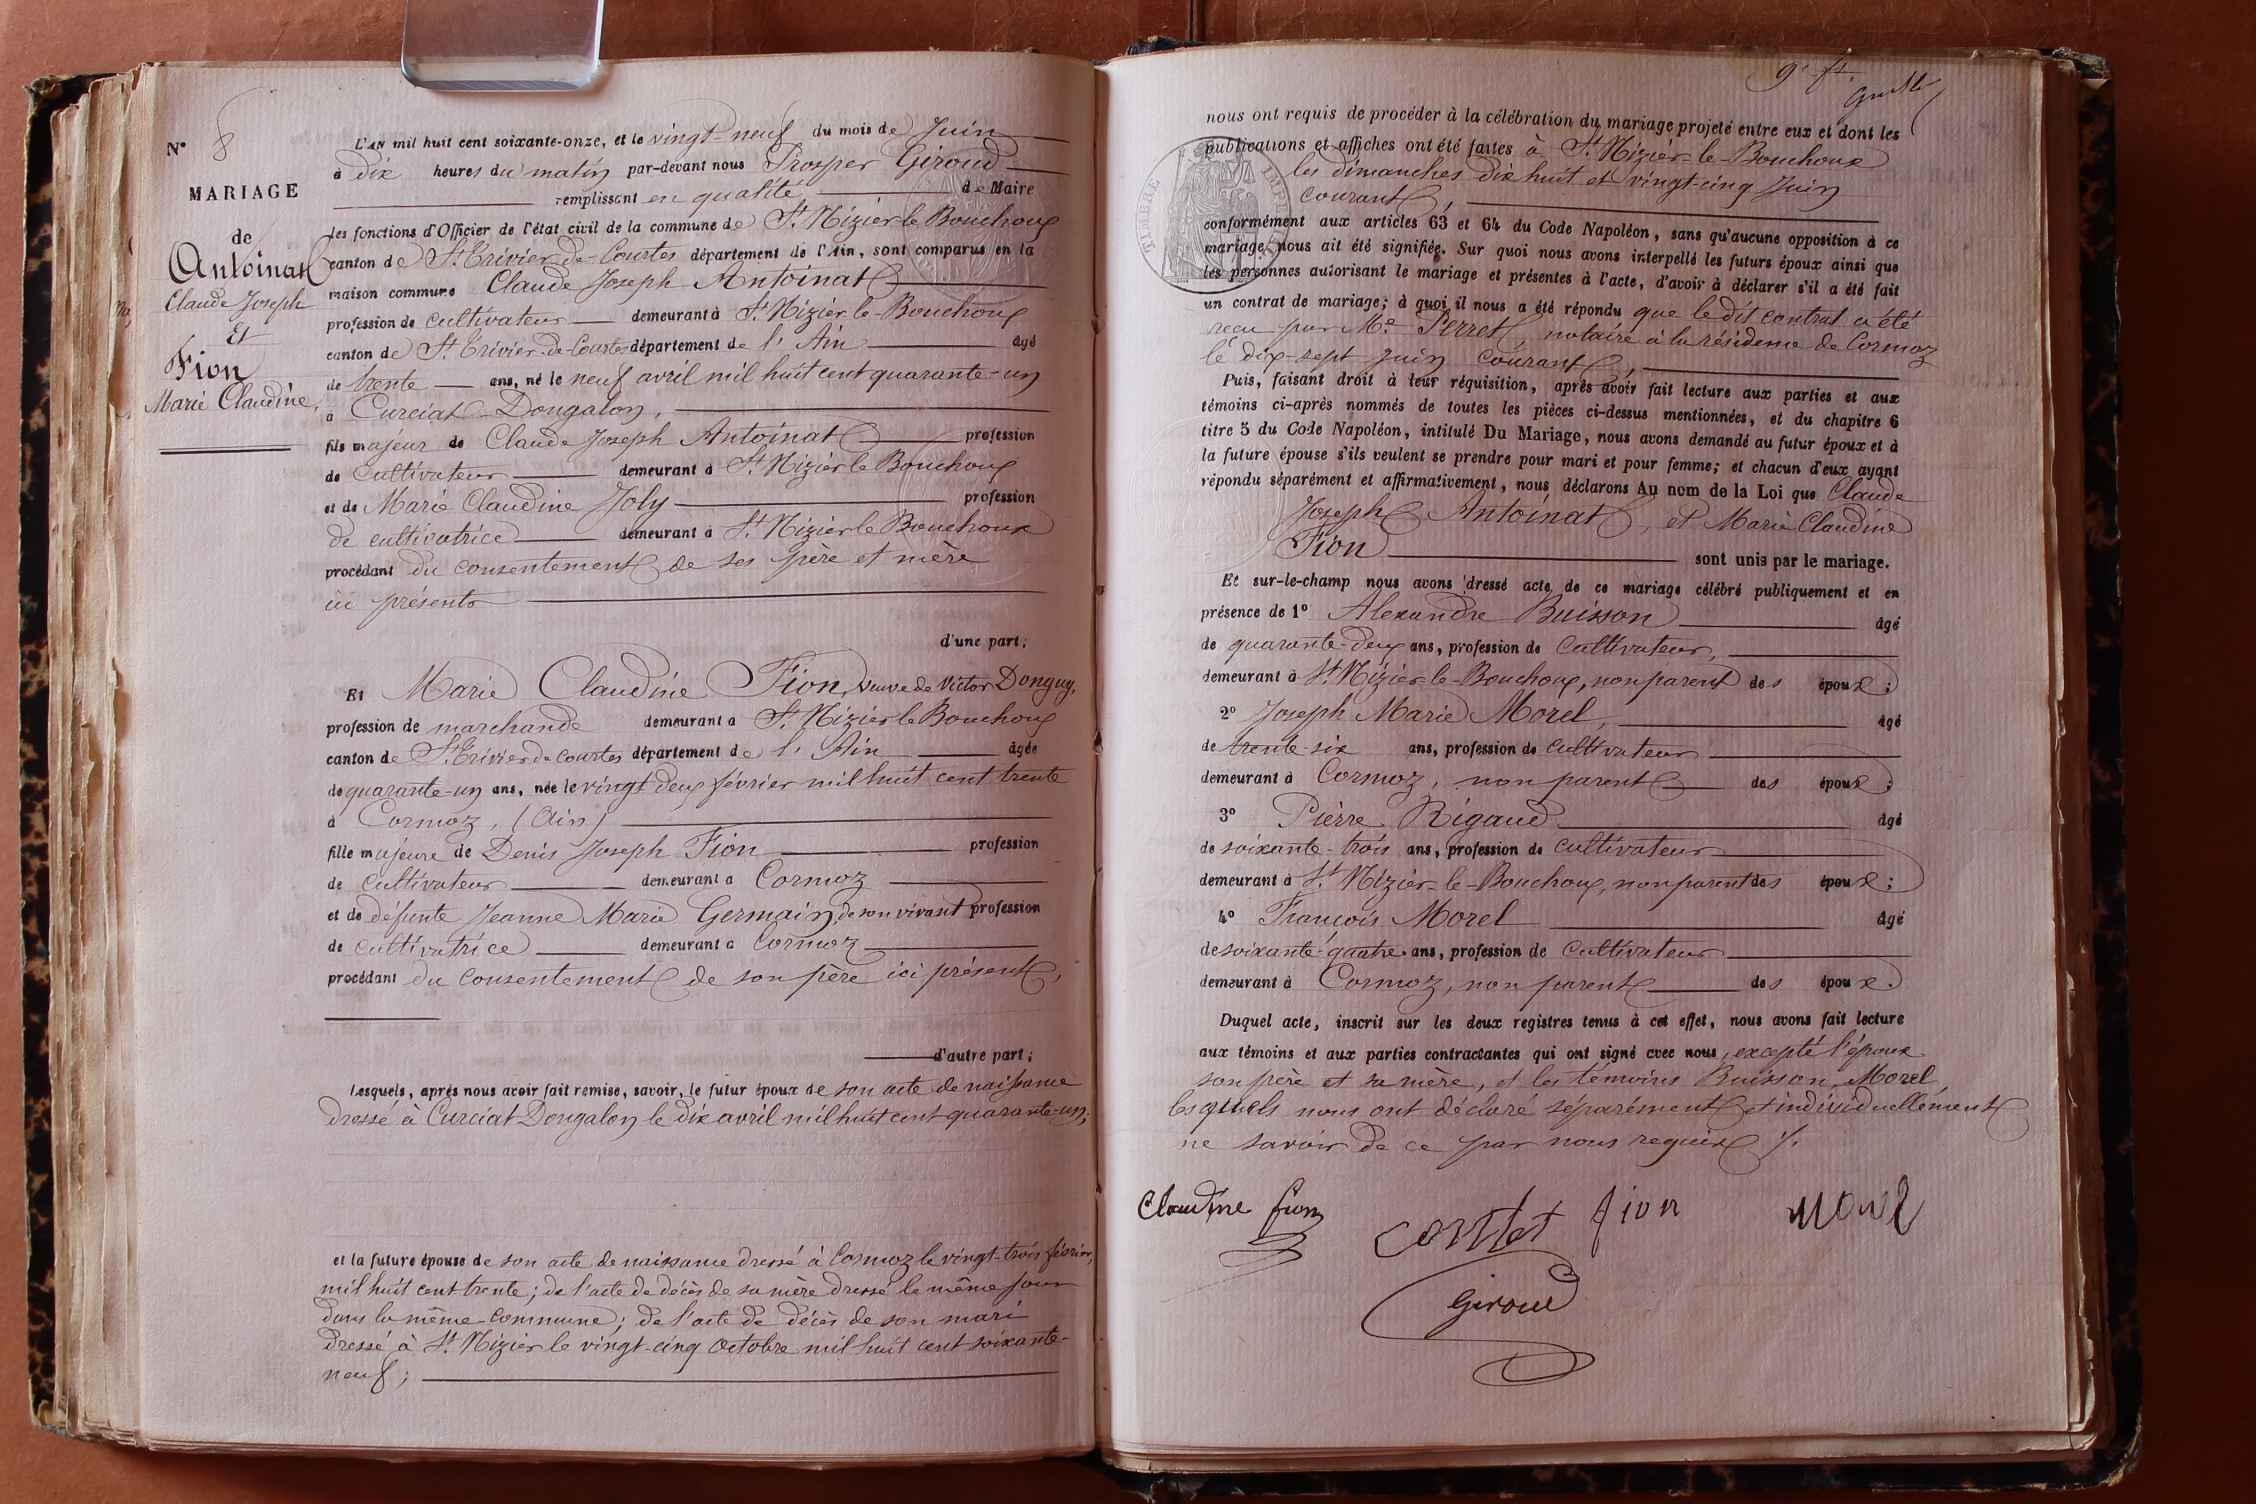 N° 8
MARIAGE
de
Antoinat
Claude Joseph
Et
Fion
Marie Claudine,
L'AN mil huit cent soixante-onze, et le vingt-neuf du mois de Juin
à dix heures du matin par-devant nous Prosper Giroud
remplissant en qualité de Maire
les fonctions d'Officier de l'état civil de la commune de St Nizier le Bouchoux
canton de St Trivier-de-Courtes département de l'Ain, sont comparus en la
maison commune Claude Joseph Antoinat
profession de cultivateur demeurant à St Nizier le Bouchoux
canton de St Trivier-de-Courtes département de l'Ain âgé
de trente ans, né le neuf avril mil huit cent quarante-un
à Curciat-Dongalon,
fils majeur de Claude Joseph Antoinat profession
de cultivateur demeurant à St Nizier le Bouchoux
et de Marie Claudine Joly profession
de cultivatrice demeurant à St Nizier le Bouchoux
procédant du consentement de ses père et mère
ici présents
d'une part;
Et Marie Claudine Fion, veuve de Victor Donguy,
profession de marchande demeurant à St Nizier le Bouchoux
canton de St Trivier de Courtes département de l'Ain âgée
de quarante-un ans, née le vingt deux février mil huit cent trente
à Cormoz, (Ain)
fille majeure de Denis Joseph Fion profession
de cultivateur demeurant à Cormoz
et de défunte Jeanne Marie Germain, de son vivant profession
de cultivatrice demeurant à Cormoz
procédant du consentement de son père ici présent,
d'autre part;
Lesquels, après nous avoir fait remise, savoir, le futur époux de son acte de naissance
dressé à Curciat-Dongalon le dix avril mil huit cent quarante-un;
et la future épouse de son acte de naissance dressé à Cormoz le vingt-trois février,
mil huit cent trente; de l'acte de décès de sa mère dressé le même jour
dans la même commune; de l'acte de décès de son mari
dressé à St Nizier le vingt-cinq octobre mil huit cent soixante-
neuf;
nous ont requis de procéder à la célébration du mariage projeté entre eux et dont les
publications et affiches ont été faites à St Nizier-le-Bouchoux
les dimanches dix huit et vingt-cinq Juin
courant,
conformément aux articles 63 et 64 du Code Napoléon, sans qu'aucune opposition à ce
mariage nous ait été signifiée. Sur quoi nous avons interpellé les futurs époux ainsi que
les personnes autorisant le mariage et présentes à l'acte, d'avoir à déclarer s'il a été fait
un contrat de mariage; à quoi il nous a été répondu que le dit contrat a été
reçu par Me Perret notaire à la résidence de Cormoz
le dix-sept Juin courant,
Puis, faisant droit à leur réquisition, après avoir fait lecture aux parties et aux
témoins ci-après nommés de toutes les pièces ci-dessus mentionnées, et du chapitre 6
titre 5 du Code Napoléon, intitulé Du Mariage, nous avons demandé au futur époux et à
la future épouse s'ils veulent se prendre pour mari et pour femme; et chacun d'eux ayant
répondu séparément et affirmativement, nous déclarons Au nom de la Loi que Claude
Joseph Antoinat, et Marie Claudine
Fion sont unis par le mariage.
Et sur-le-champ nous avons dressé acte de ce mariage célébré publiquement et en
présence de 1° Alexandre Buisson âgé
de quarante-deux ans, profession de cultivateur,
demeurant à St Nizier-le-Bouchoux, non parent des époux;
2° Joseph Marie Morel, âgé
de trente-six ans, profession de cultivateur
demeurant à Cormoz, non parent des époux;
3° Pierre Rigaud âgé
de soixante-trois ans, profession de cultivateur
demeurant à St Nizier-le-Bouchoux, non parent des époux;
4° François Morel âgé
de soixante-quatre ans, profession de cultivateur
demeurant à Cormoz, non parent des époux.
Duquel acte, inscrit sur les deux registres tenus à cet effet, nous avons fait lecture
aux témoins et aux parties contractantes qui ont signé avec nous, excepté l'époux
son père et sa mère, et les témoins Buisson, Morel,
lesquels nous ont déclaré séparément et individuellement
ne savoir de ce par nous requis ./.
Claudine fion fion Morel
Giroud